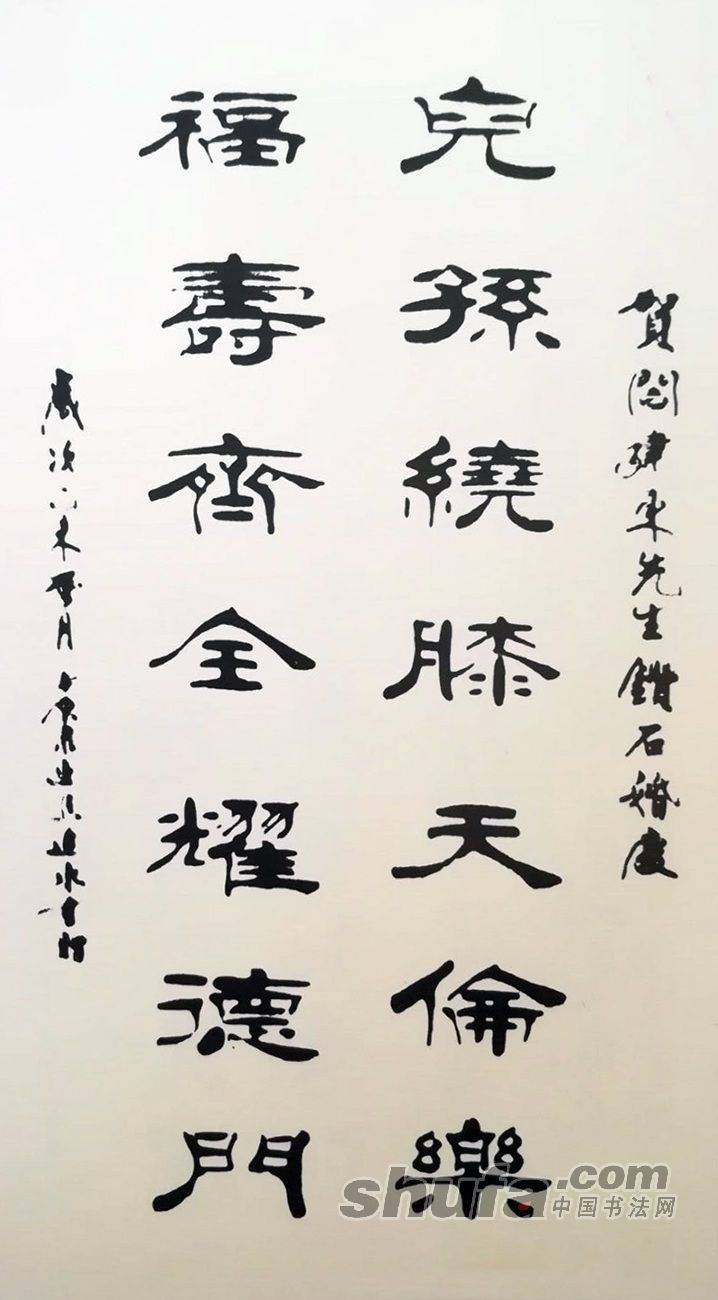 賀閻建東先生鑽石婚慶
兒孫繞膝天倫樂
福壽齊全耀德門
歲次
月
shufa.com
中国书法网